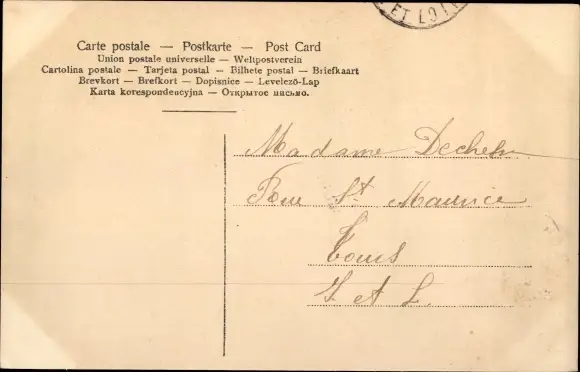 ET LOI
Carte postale — Postkarte — Post Card
Union postale universelle — Weltpostverein
Cartolina postale — Tarjeta postal — Bilhete postal — Briefkaart
Brevkort — Brefkort — Dopisnice — Levelező-Lap
Karta korespondencyjna — Открытое письмо.
Madame
Rue St Maurice
Tours
I et L.